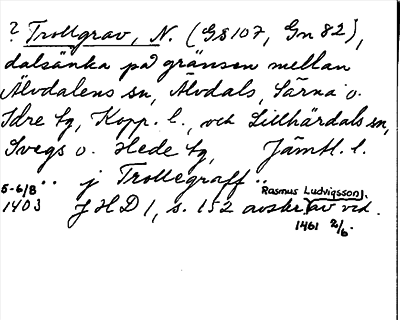 ? Trollgrav, N. (GS 107, Gn 82),
dalsänka på gränsen mellan
Älvdalens sn, Älvdals, Särna o.
Idre tg, Kopp. l., och Lillhärdals sn,
Svegs o. Hede tg, Jämtl. l.
.. j Trollegraff ..
Rasmus Ludvigsson).
5-6/8
1403 JHD 1, s. 152 avskr. av vid.
1461 2/6.